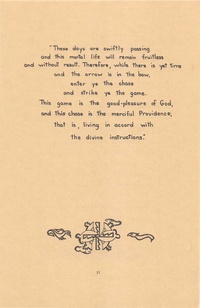 "These days are swiftly passing
and this mortal life will remain fruitless
and without result. Therefore, while there is yet time
and the arrow is in the bow,
enter ye the chase
and strike ye the game.
This game is the good-pleasure of God,
and this chase is the merciful Providence,
that is, living in accord with
the divine instructions."